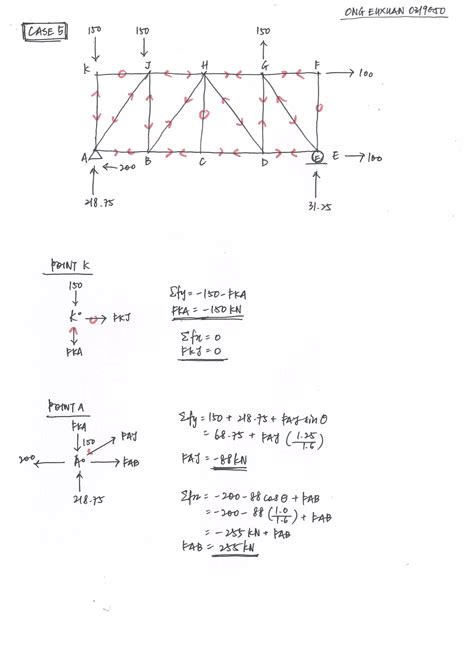 ONG EUXUAN 0319050
CASE 5
150 150 150
K J H G F 100
A B C D E E 100
200
218.75 31.25
POINT K
150
K FKJ
FKA
Σfy = -150 - FKA
FKA = -150 KN
Σfx = 0
FKJ = 0
POINT A
FKA
150 FAJ
200 A FAB
218.75
Σfy = 150 + 218.75 + FAJ sin θ
= 68.75 + FAJ (1.25/1.6)
FAJ = -88 KN
Σfx = -200 - 88 cos θ + FAB
= -200 - 88 (1.0/1.6) + FAB
= -255 KN + FAB
FAB = 255 KN